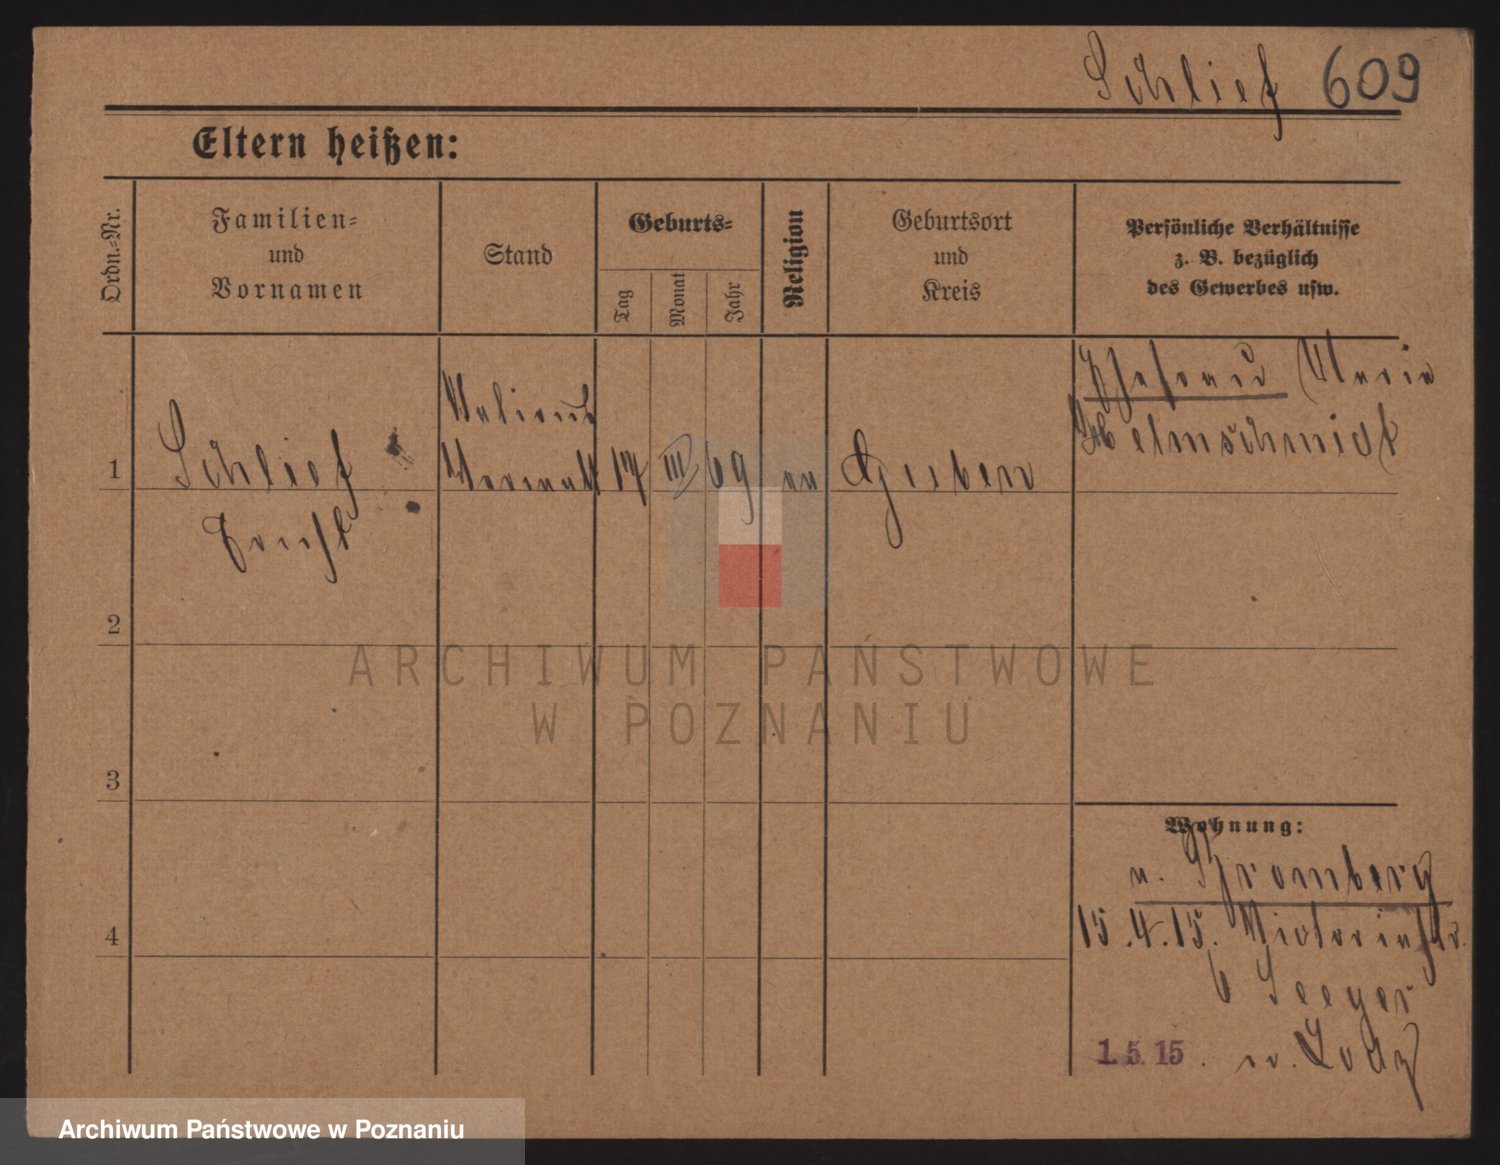 Schlief 609
Eltern heißen:
Ordn.-Nr.
Familien-
und
Vornamen
Stand
Geburts-
Tag
Monat
Jahr
Religion
Geburtsort
und
Kreis
Persönliche Verhältnisse
z. B. bezüglich
des Gewerbes usw.
1
Schlief
17 III 69
Guben
Ehefrau Maria
Helmschmidt
2
3
4
ARCHIWUM PAŃSTWOWE
W POZNANIU
Wohnung:
v. Bromberg
15.4.15. Victoriastr.
6 Seeger
1.5.15. n. Lodz
Archiwum Państwowe w Poznaniu